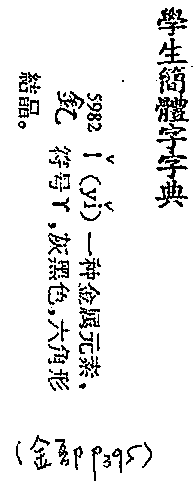 學生簡體字字典
5982
釔 ǐ (yǐ) 一种金属元素,
符号Y,灰黑色,六角形
結晶。
(金部P p395)